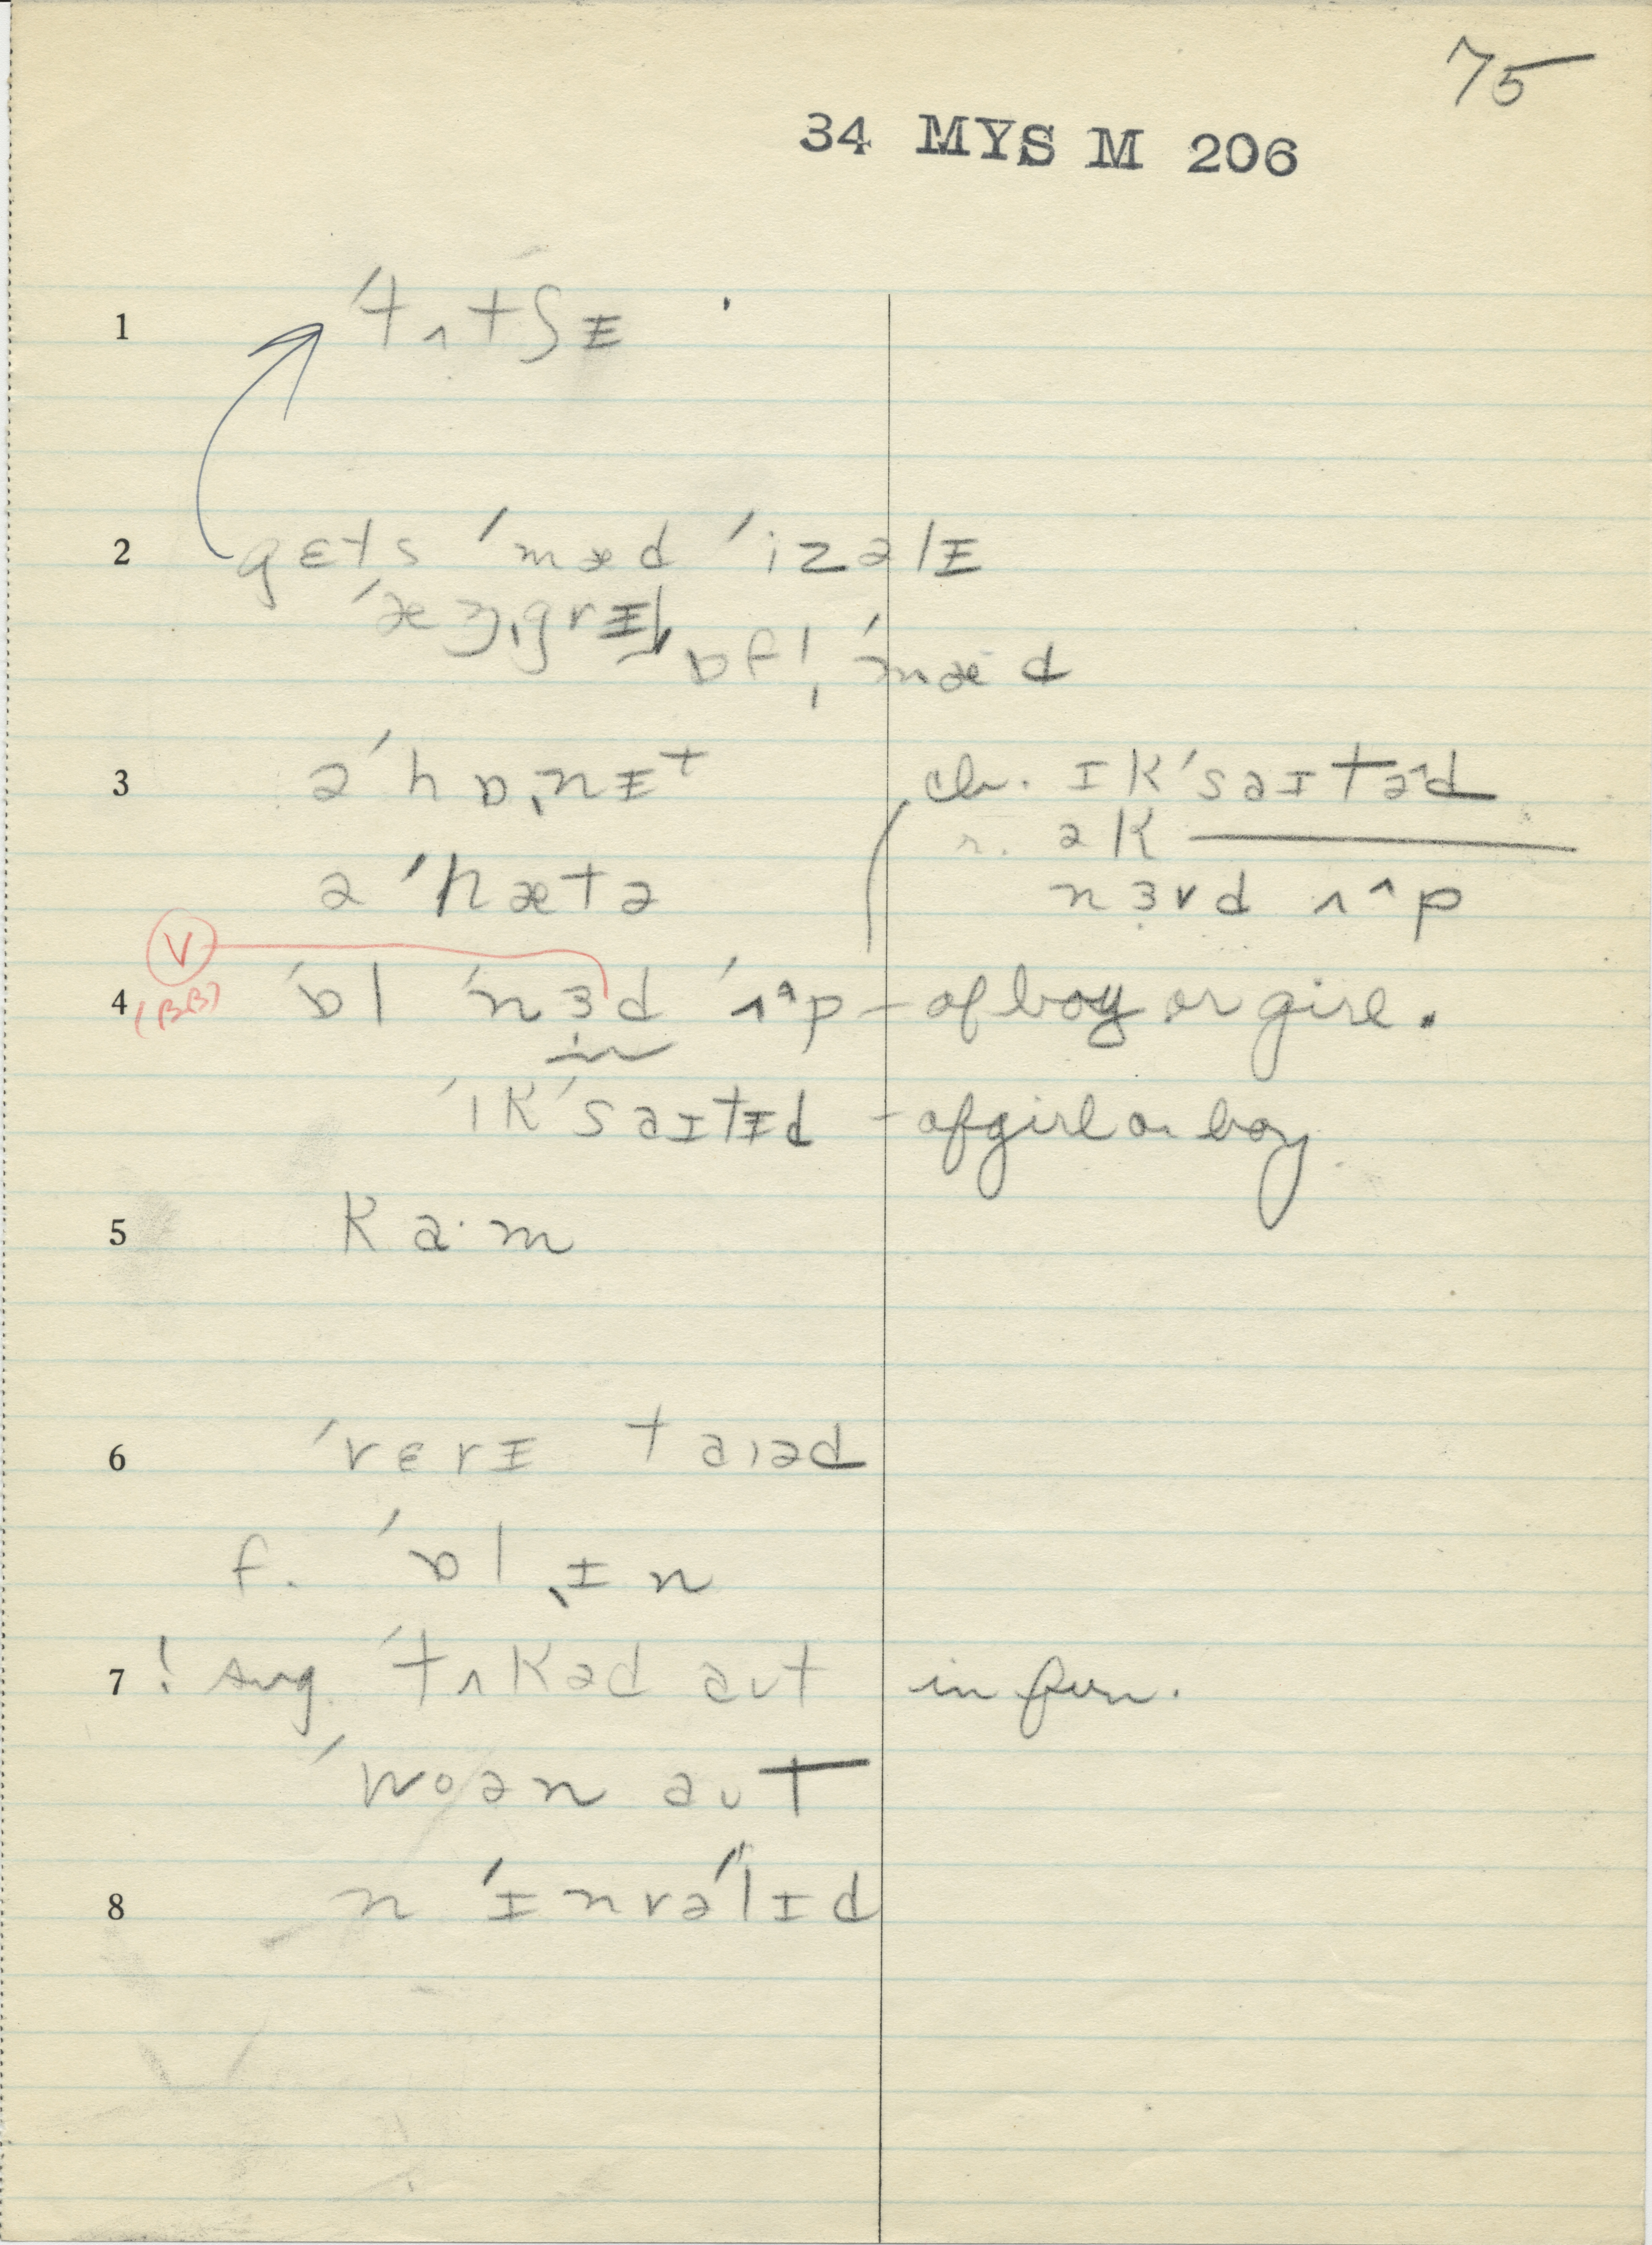 75
34 MYS M 206
1 ˈtʌtʃɪ
2 gɛts ˈmæd ˈizəlɪ
ɒfl̩ ˈmæd
3 əˈhɒˌnɪt
ch. ɪkˈsaɪtəd
r. ək ———
nɜvd ʌˆp
ə ˈhætə
V
(BB)
4 ˈɒl ˈnɜd ˈʌˆp – of boy or girl.
ˈikˈsaɪtɪd – of girl or boy
5 ka·m
6 ˈvɛrɪ taɪəd
f. ˈɒl ˌɪn
7 ! sug. ˈtʌkəd aʊt in fun.
ˈwoən aʊt
8 n ˈɪnvəˈlɪd